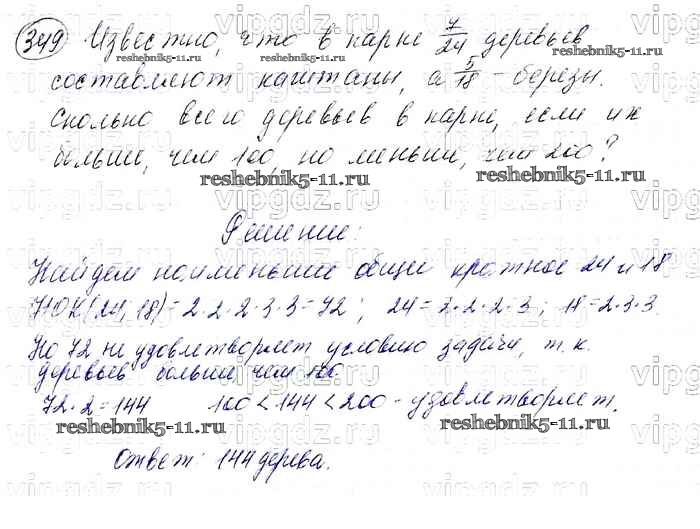 349 Известно, что в парке 7/24 деревьев
составляют каштаны, а 5/18 - березы.
Сколько всего деревьев в парке, если их
больше, чем 100, но меньше, чем 200?
reshebnik5-11.ru reshebnik5-11.ru
Решение:
Найдем наименьшее общее кратное 24 и 18
НОК(24, 18)=2·2·2·3·3=72; 24=2·2·2·3; 18=2·3·3.
Но 72 не удовлетворяет условию задачи, т.к.
деревьев больше чем 100.
72·2=144 100<144<200 - удовлетворяет.
reshebnik5-11.ru reshebnik5-11.ru
Ответ: 144 дерева.